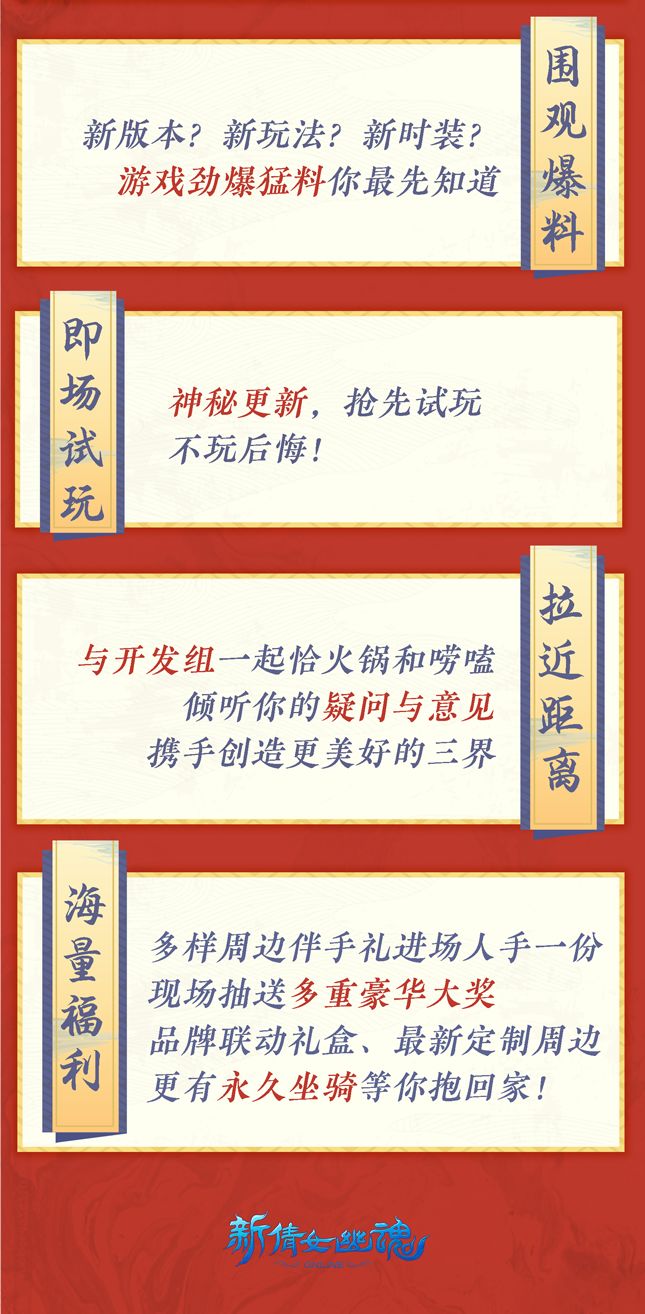 围观爆料
新版本？新玩法？新时装？
游戏劲爆猛料你最先知道
即场试玩
神秘更新，抢先试玩
不玩后悔！
拉近距离
与开发组一起恰火锅和唠嗑
倾听你的疑问与意见
携手创造更美好的三界
海量福利
多样周边伴手礼进场人手一份
现场抽送多重豪华大奖
品牌联动礼盒、最新定制周边
更有永久坐骑等你抱回家！
新倩女幽魂
ONLINE